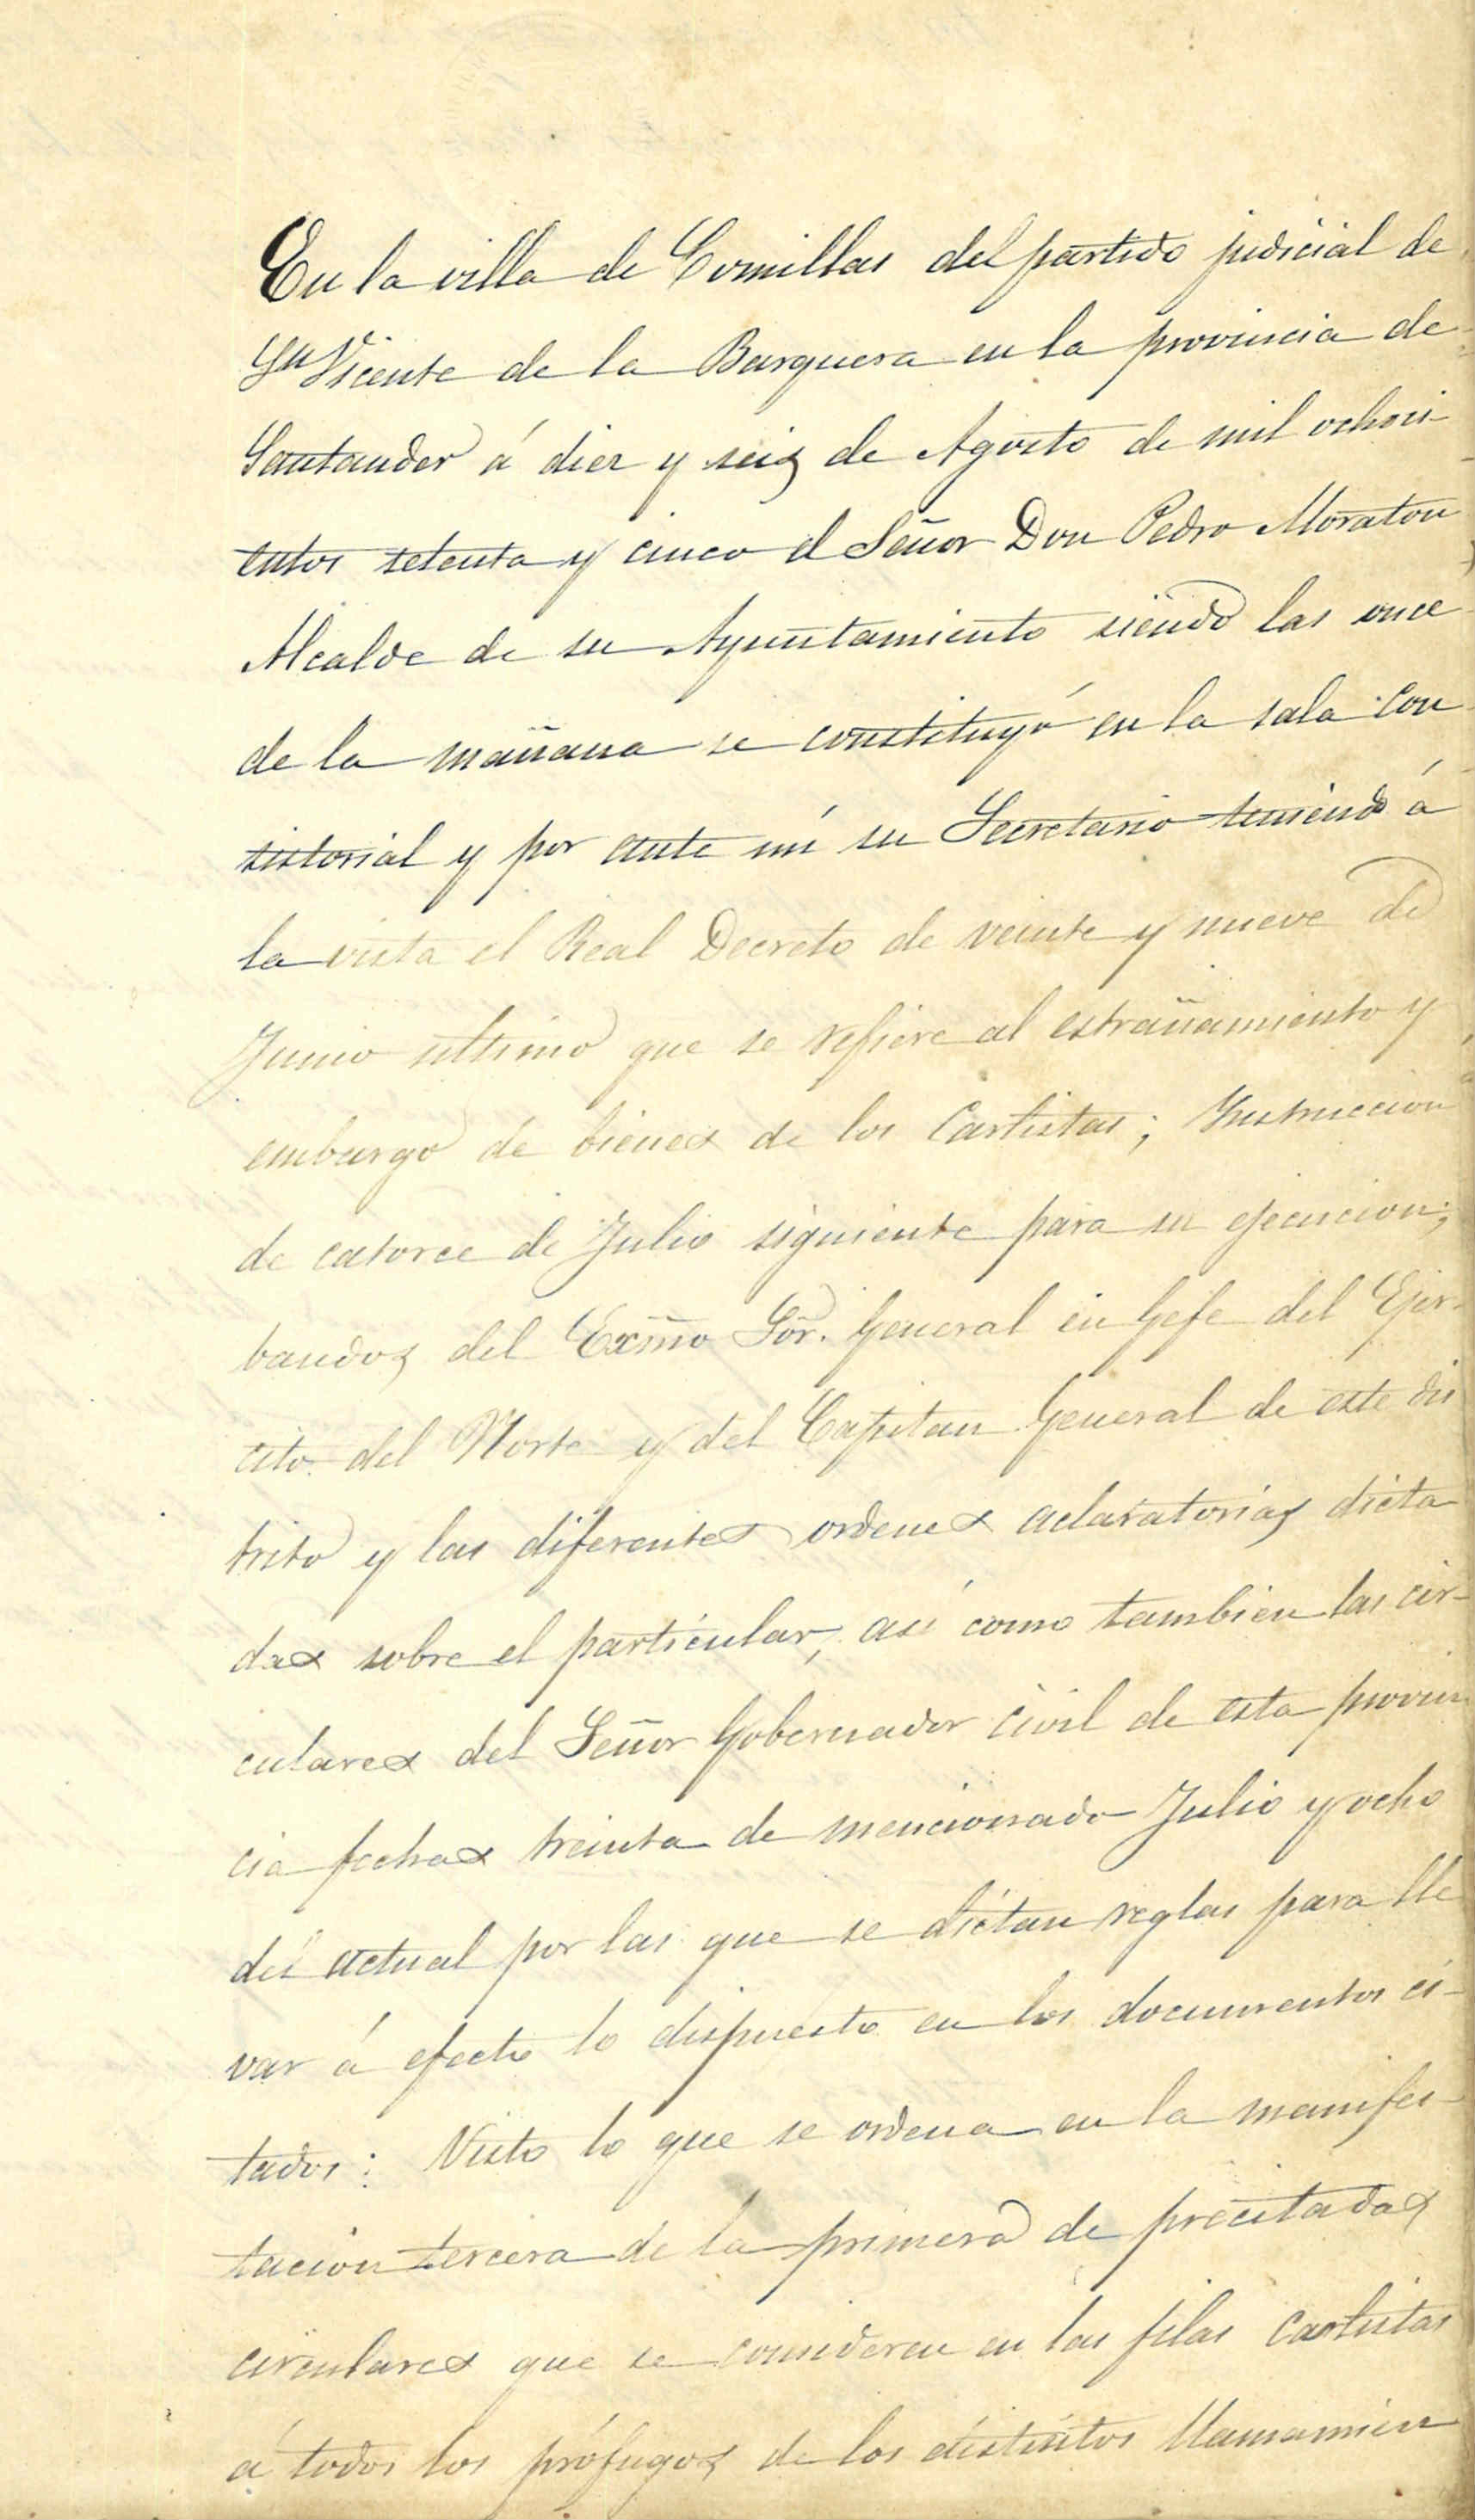 En la villa de Comillas del partido judicial de
Sn Vicente de la Barquera en la provincia de
Santander á diez y seis de Agosto de mil ochoci-
entos setenta y cinco el Señor Don Pedro Moraton
Alcalde de su Ayuntamiento siendo las once
de la mañana se constituyó en la sala con
sistorial y por ante mí su Secretario teniendo á
la vista el Real Decreto de veinte y nueve de
Junio ultimo que se refiere al estrañamiento y
embargo de bienes de los Carlistas; Instruccion
de catorce de Julio siguiente para su ejecucion;
bandos del Exm̃o Sõr. General en Gefe del Ejer-
cito del Norte y del Capitan General de este dis
trito y las diferentes ordenes aclaratorias dicta
das sobre el particular, así como tambien las cir-
culares del Señor Gobernador civil de esta provin
cia fechas treinta de mencionado Julio y ocho
del actual por las que se dictan reglas para lle
var á efecto lo dispuesto en los documentos ci-
tados: Visto lo que se ordena en la manifes-
tacion tercera de la primera de precitadas
circulares que se consideren en las filas Carlistas
á todos los prófugos de los distintos llamamien